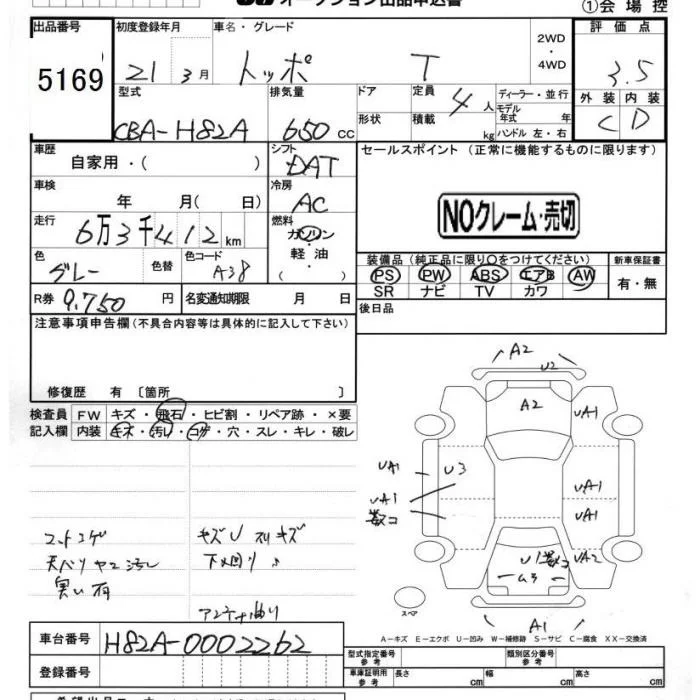 オークション出品申込書 ①会場控
出品番号 初度登録年月 車名・グレード 2WD・4WD 評価点
5169 21年 3月 トッポ T 3.5
型式 排気量 ドア 定員 4人 ディーラー・並行 外装 内装
CBA-H82A 650cc 形状 積載 kg モデル年式 年 ハンドル 左・右 C D
車歴 シフト セールスポイント (正常に機能するものに限ります)
自家用・( ) DAT
車検 冷房
年 月( 日) AC NOクレーム・売切
走行 燃料
6万3千412km ガソリン・軽油・( )
色 色替 色コード 装備品 (純正品に限り○をつけてください) 新車保証書
グレー A38 PS PW ABS エアB AW 有・無
SR ナビ TV カワ
R券 9.750円 名変通知期限 月 日 後日品
注意事項申告欄 (不具合内容等は具体的に記入して下さい)
修復歴 有 〔箇所 〕
検査員 FW キズ・飛石・ヒビ割・リペア跡・×要
記入欄 内装 キズ・汚れ・コゲ・穴・スレ・キレ・破レ
A2
U2
A2 UA1
UA1 U3
UA1 UA1
数コ UA1
U1数コ UA2
A1
スペア
コゲ キズU スリキズ
天バリヤニ汚レ 下メ回り
臭い有
アンテナ曲り
A-キズ E-エクボ U-凹み W-補修跡 S-サビ C-腐食 XX-交換済
車台番号 H82A-0002262
型式指定番号 参考 類別区分番号 参考
登録番号 車庫証明用 参考 長さ cm 幅 cm 高さ cm